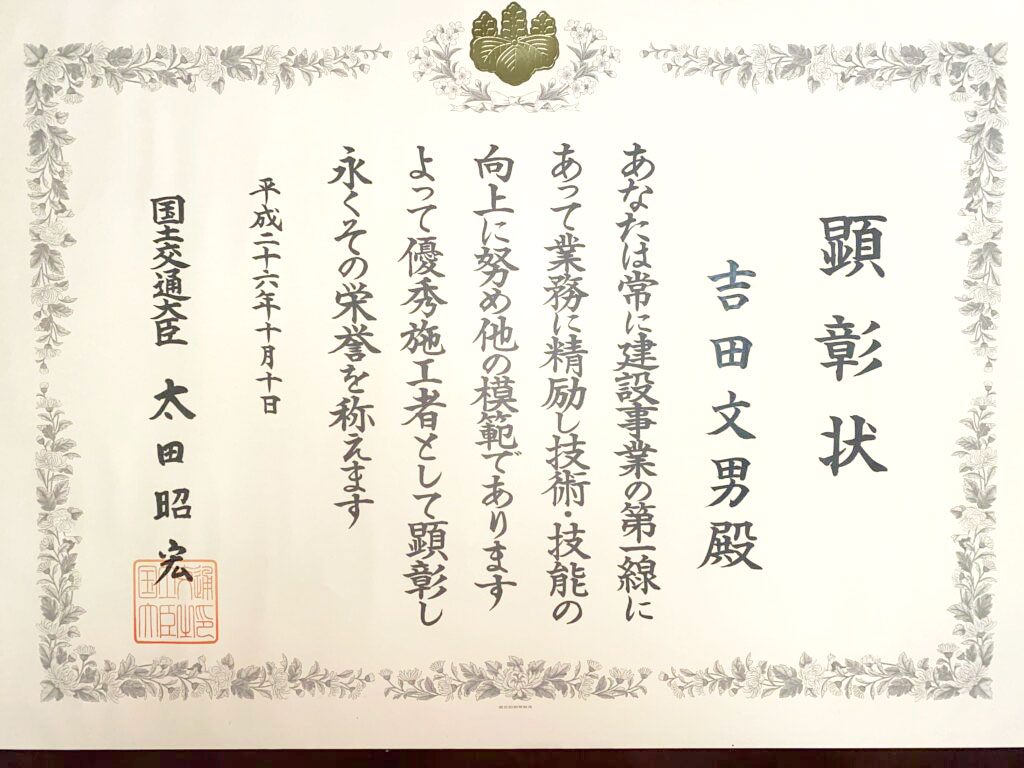 顕彰状
吉田文男殿
あなたは常に建設事業の第一線に
あって業務に精励し技術・技能の
向上に努め他の模範であります
よって優秀施工者として顕彰し
永くその栄誉を称えます
平成二十六年十月十日
国土交通大臣 太田昭宏